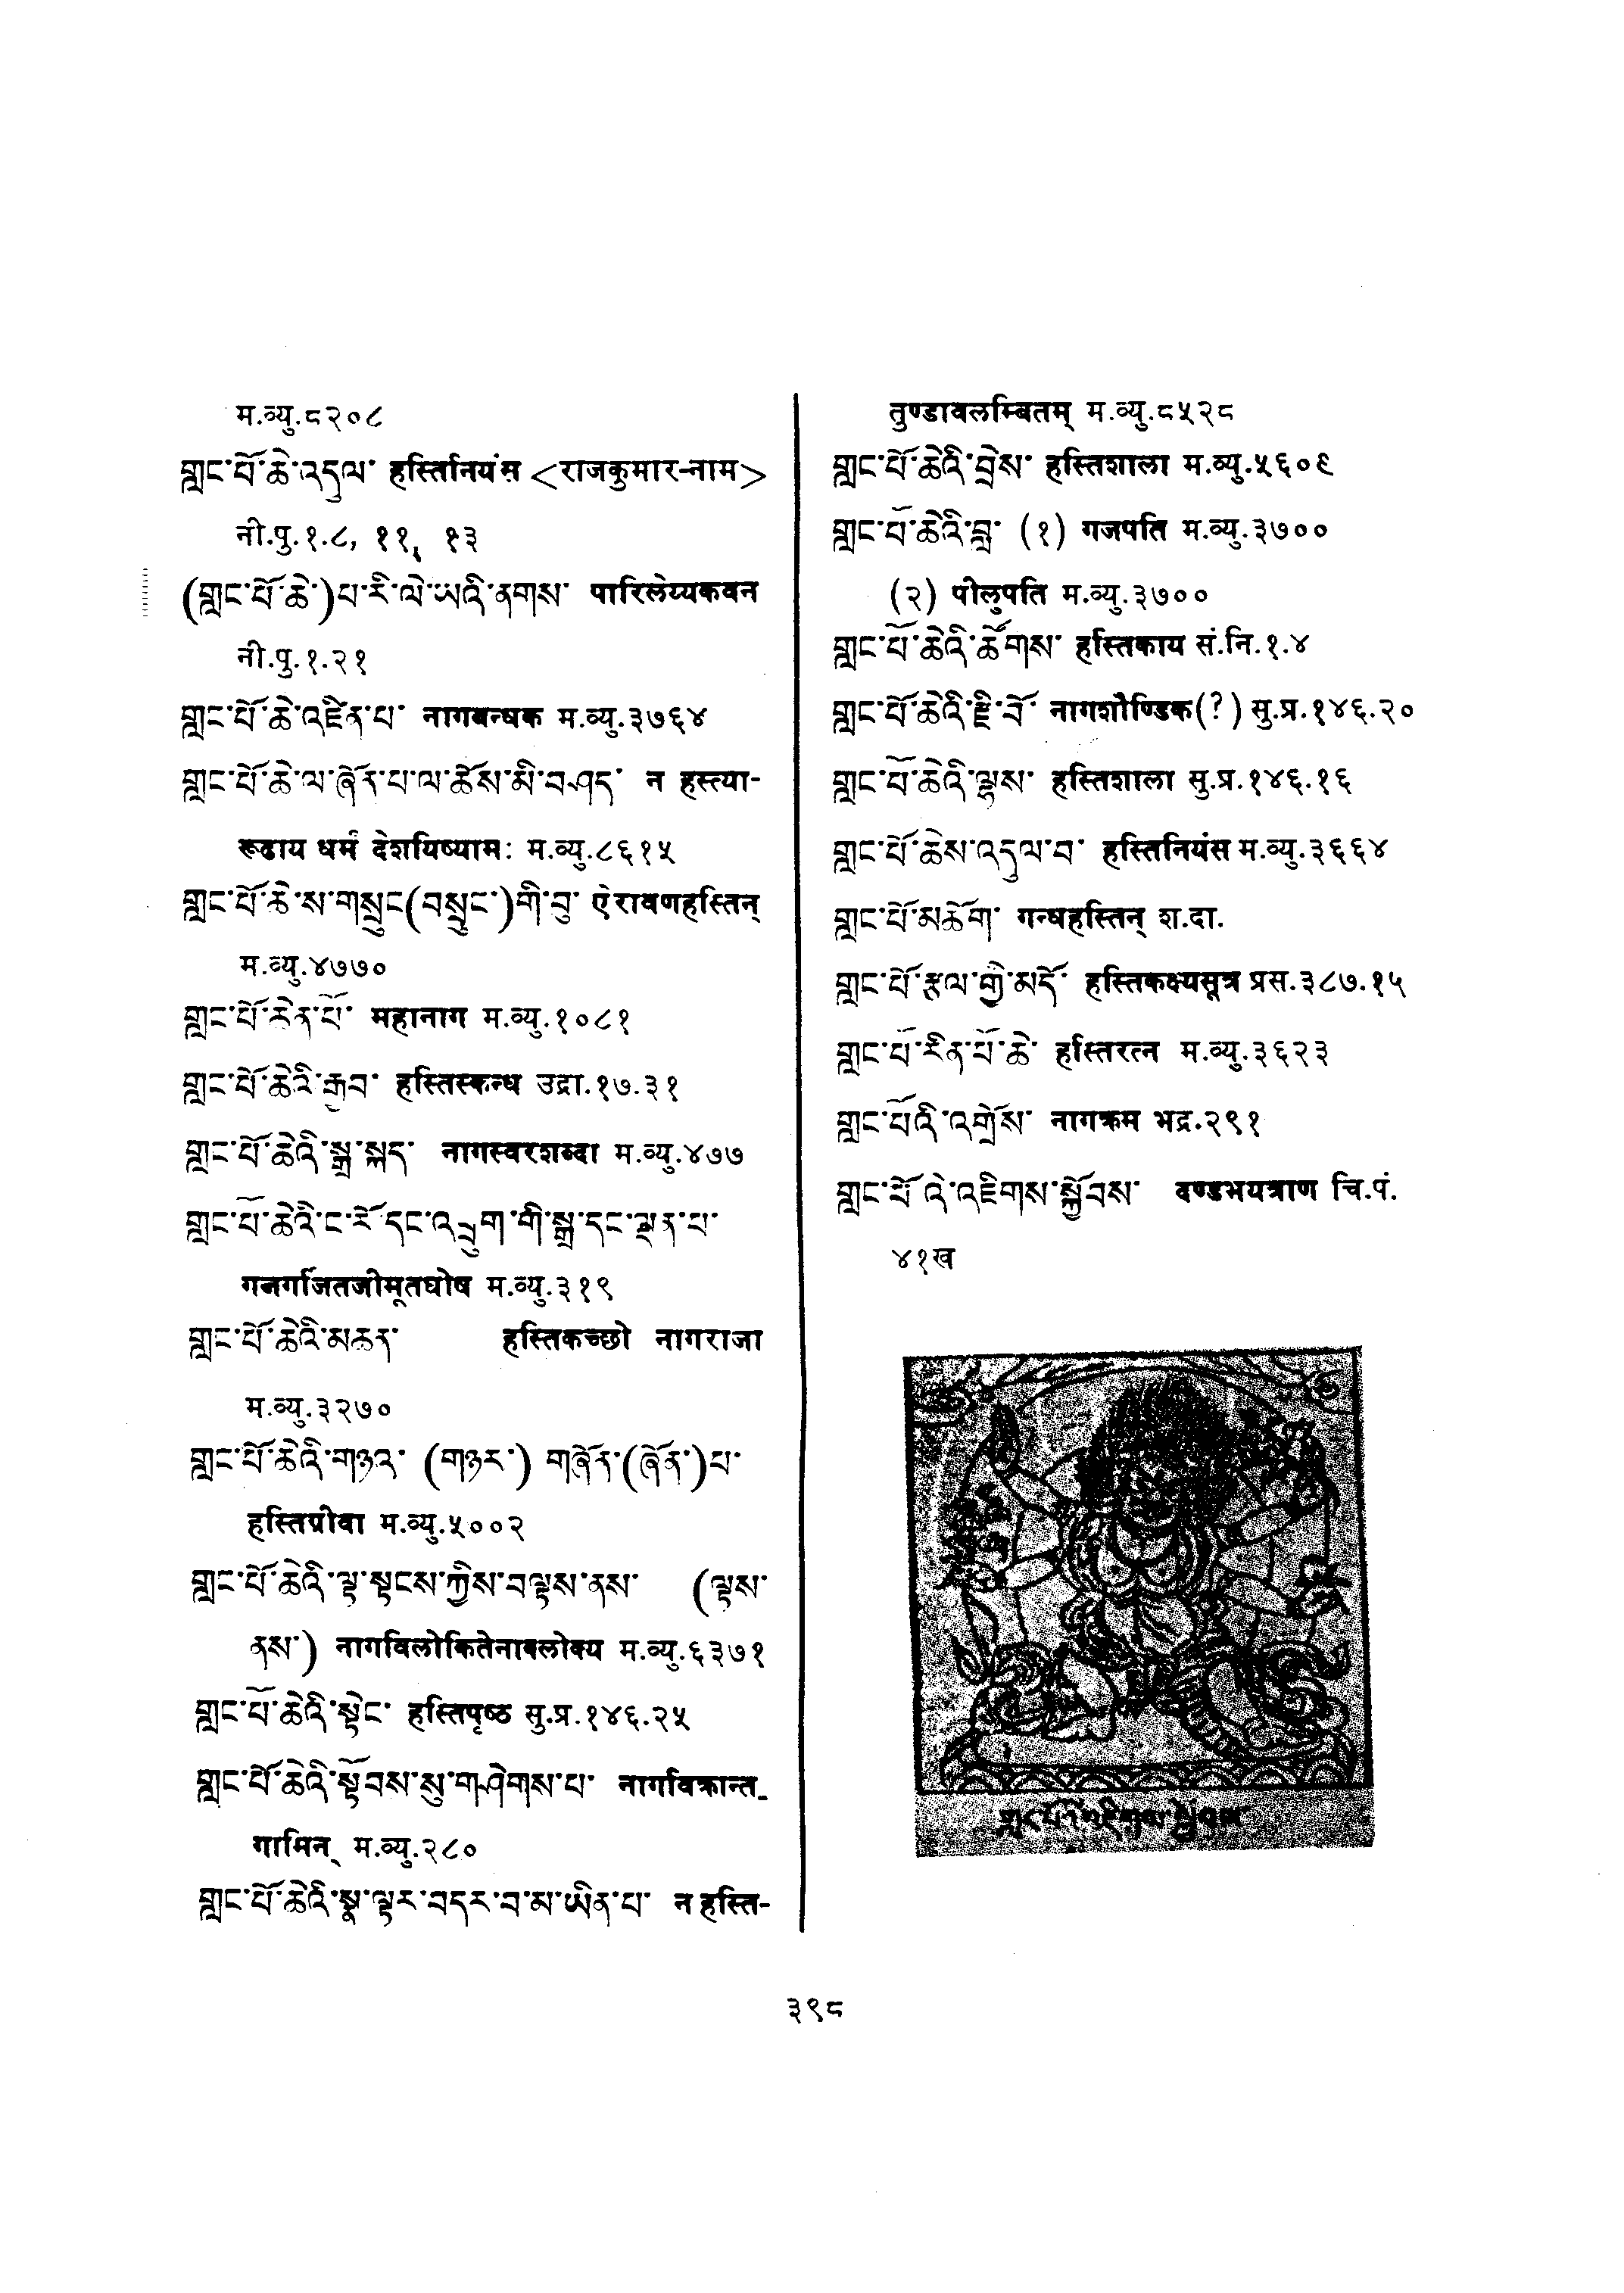 म.व्यु.८२०८
གླང་པོ་ཆེ་འདུལ་ हस्तिनियंस <राजकुमार-नाम>
नी.पु.१.८, ११, १३
(གླང་པོ་ཆེ་)པ་རི་ལེ་ཡའི་ནགས་ पारिलेय्यकवन
नी.पु.१.२१
གླང་པོ་ཆེ་འཛིན་པ་ नागबन्धक म.व्यु.३७६४
གླང་པོ་ཆེ་ལ་ཞོན་པ་ལ་ཆོས་མི་བཤད་ न हस्त्या-
रूढाय धर्मं देशयिष्यामः म.व्यु.८६१५
གླང་པོ་ཆེ་ས་གསྲུང(བསྲུང་)གི་བུ་ ऐरावणहस्तिन्
म.व्यु.४७७०
གླང་པོ་ཆེན་པོ་ महानाग म.व्यु.१०८१
གླང་པོ་ཆེའི་རྒྱབ་ हस्तिस्कन्ध उद्रा.१७.३१
གླང་པོ་ཆེའི་སྒྲ་སྐད་ नागस्वरशब्दा म.व्यु.४७७
གླང་པོ་ཆེའི་ང་རོ་དང་འབྲུག་གི་སྒྲ་དང་ལྡན་པ་
गजगर्जितजीमूतघोष म.व्यु.३१९
གླང་པོ་ཆེའི་མཆན་ हस्तिकच्छो नागराजा
म.व्यु.३२७०
གླང་པོ་ཆེའི་གཉའ་ (གཉར་) གཞོན་(ཞོན་)པ་
हस्तिग्रीवा म.व्यु.५००२
གླང་པོ་ཆེའི་ལྟ་སྟངས་ཀྱིས་བལྟས་ནས་ (ལྟས་
ནས་) नागविलोकितेनावलोक्य म.व्यु.६३७१
གླང་པོ་ཆེའི་སྟེང་ हस्तिपृष्ठ सु.प्र.१४६.२५
གླང་པོ་ཆེའི་སྟོབས་སུ་གཤེགས་པ་ नागविक्रान्त-
गामिन् म.व्यु.२८०
གླང་པོ་ཆེའི་སྣ་ལྟར་བདར་བ་མ་ཡིན་པ་ न हस्ति-
तुण्डावलम्बितम् म.व्यु.८५२८
གླང་པོ་ཆེའི་བྲེས་ हस्तिशाला म.व्यु.५६०९
གླང་པོ་ཆེའི་བླ་ (१) गजपति म.व्यु.३७००
(२) पीलुपति म.व्यु.३७००
གླང་པོ་ཆེའི་ཚོགས་ हस्तिकाय सं.नि.१.४
གླང་པོ་ཆེའི་རྫི་བོ་ नागशौण्डिक(?) सु.प्र.१४६.२०
གླང་པོ་ཆེའི་ལྷས་ हस्तिशाला सु.प्र.१४६.१६
གླང་པོ་ཆེས་འདུལ་བ་ हस्तिनियंस म.व्यु.३६६४
གླང་པོ་མཆོག་ गन्धहस्तिन् श.दा.
གླང་པོ་རྩལ་གྱི་མདོ་ हस्तिकक्ष्यसूत्र प्रस.३८७.१५
གླང་པོ་རིན་པོ་ཆེ་ हस्तिरत्न म.व्यु.३६२३
གླང་པོའི་འགྲོས་ नागक्रम भद्र.२९१
གླང་པོ་འི་འཇིགས་སྐྱོབས་ दण्डभयत्राण चि.पं.
४१ख
གླང་པོའི་འཇིགས་སྐྱོབས་
३९८